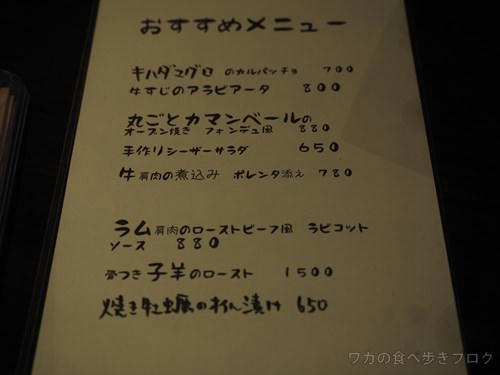 おすすめメニュー
キハダマグロ のカルパッチョ 700
牛すじのアラビアータ 800
丸ごとカマンベールの
オーブン焼き フォンデュ風 880
手作りシーザーサラダ 650
牛肩肉の煮込み ポレンタ添え 780
ラム肩肉のローストビーフ風 ラビゴット
ソース 880
骨つき子羊のロースト 1500
焼き牡蠣のオイル漬け 650
ワカの食べ歩きブログ